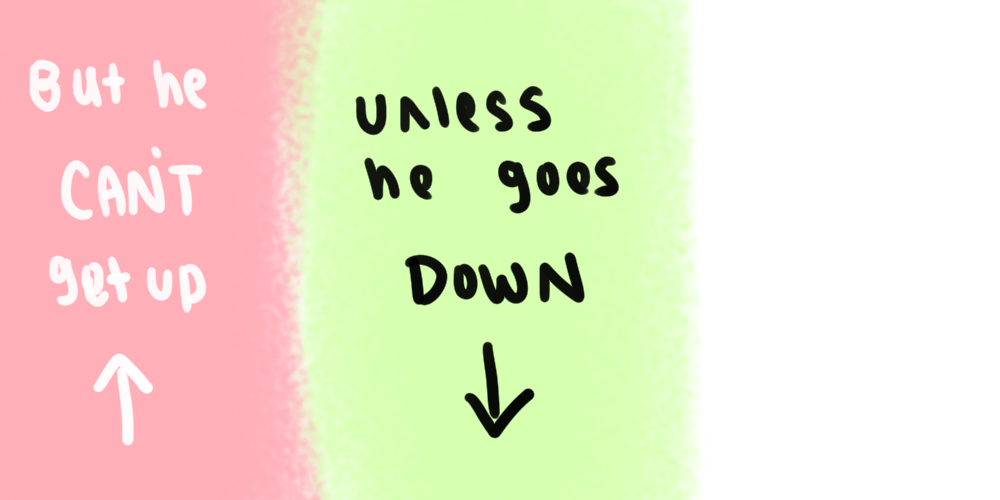 But he
CAN'T
get up
unless
he goes
DOWN